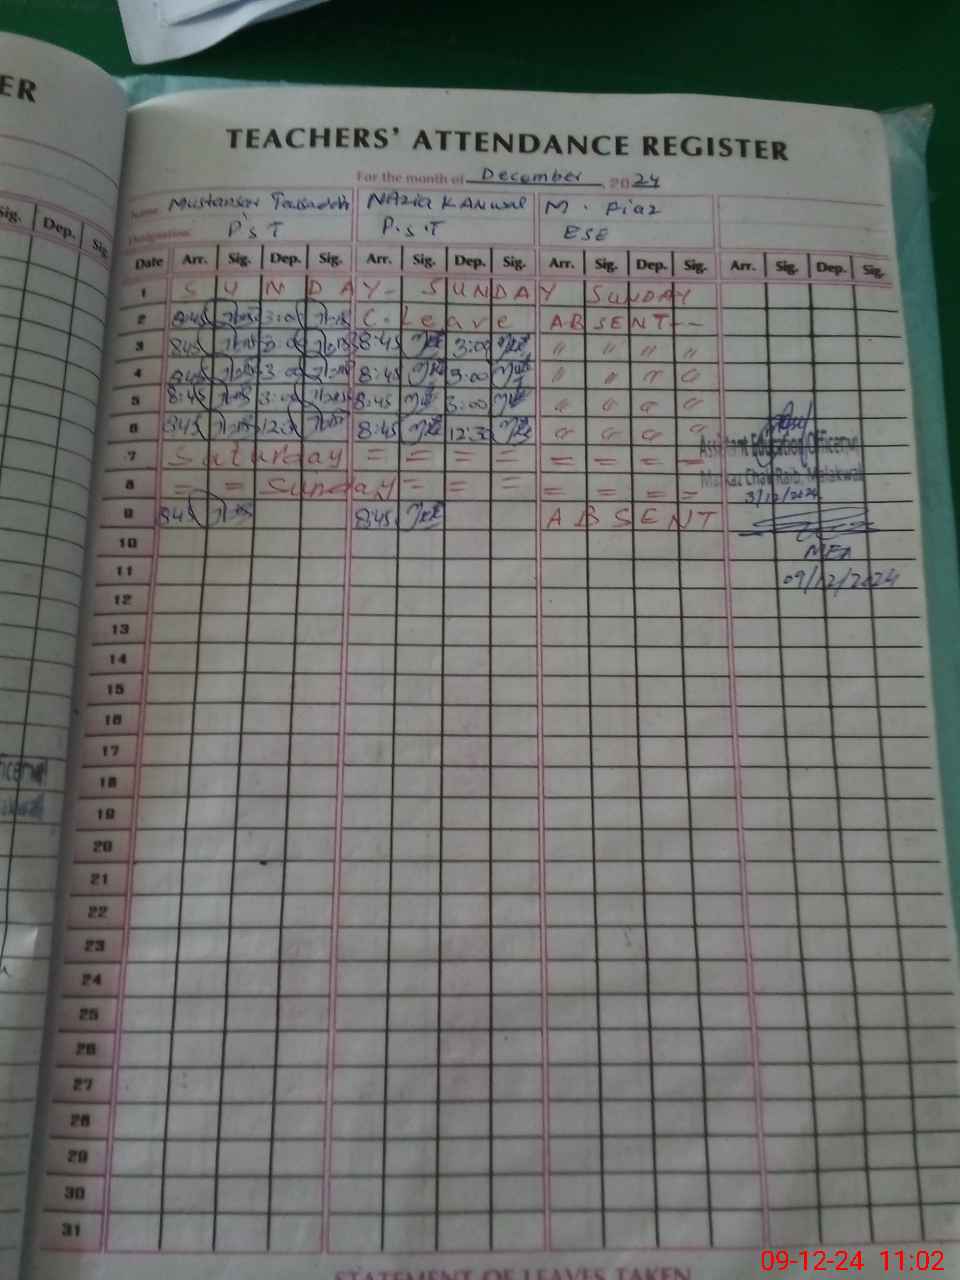 ER
TEACHERS' ATTENDANCE REGISTER
For the month of December, 2024
Name Mustansar NAzia KAnwal M. Fiaz
Designation P's T P.s.T ESE
Sig. Dep. Sig.
Date Arr. Sig. Dep. Sig. Arr. Sig. Dep. Sig. Arr. Sig. Dep. Sig. Arr. Sig. Dep. Sig.
1 S U N D A Y - S U N D A Y SUNDAY
2 8:45 3:00 C. Leave ABSENT--
3 8:45 3:00 8:45 3:00 " " " "
4 8:45 3:00 8:45 3:00 " " " "
5 8:45 3:00 8:45 3:00 " " " "
6 8:45 12:30 8:45 12:30 " " " "
Assistant Education Officer
7 Saturday = = = = = = = =
Markaz Chak Raib, Malakwal
8 = = Sunday = = = = = = =
3/12/2024
9 8:45 8:45 ABSENT
10
MEA
11
09/12/2024
12
13
14
15
16
17
18
19
20
21
22
23
24
25
26
27
28
29
30
31
STATEMENT OF LEAVES TAKEN
09-12-24 11:02